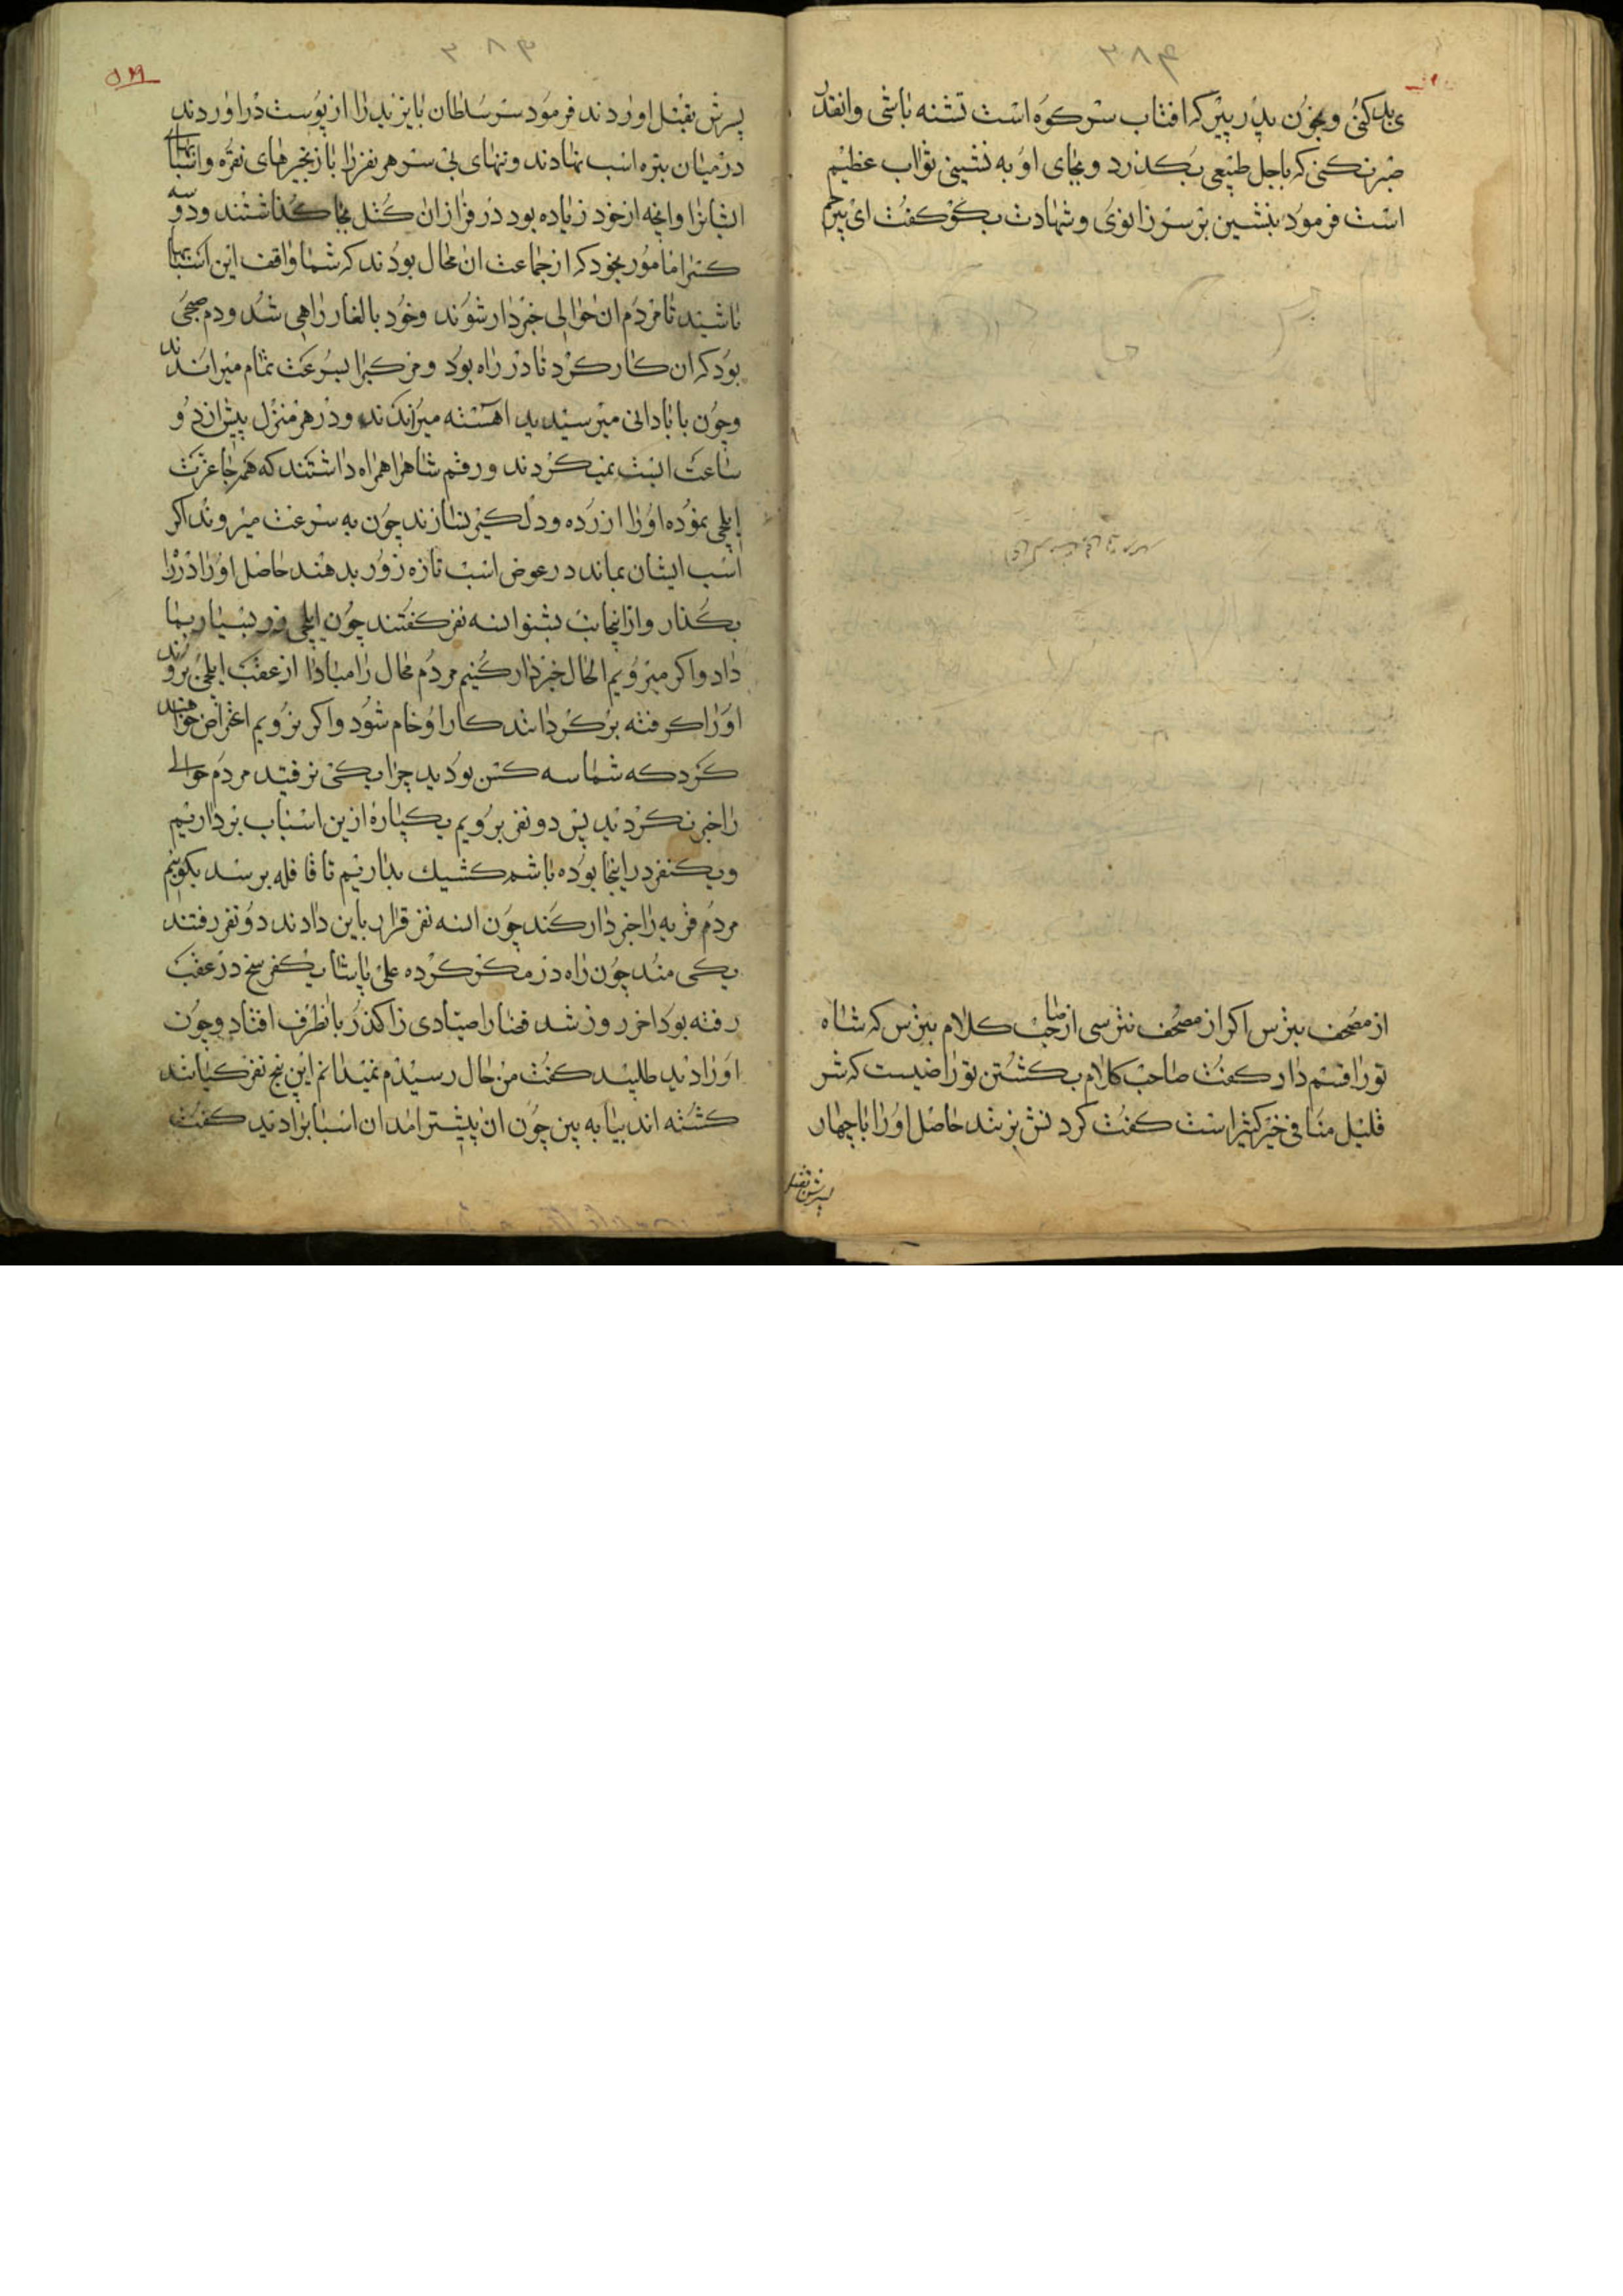 ی بد کنی و بخون پدر پیر که افتاب سر کوه است تشنه باشی وانقدر
صبر نکنی که باجل طبیعی بگذرد و بجای او به نشینی ثواب عظیم
است فرمود بنشین بر سر زانوی و شهادت بگو گفت ای بیرحم
از مصحف بترس اگر از مصحف نترسی از صاحب کلام بترس که شاه
تو را قسم داد گفت صاحب کلام بکشتن تو راضیست که شر
قلیل منافی خیر کثیر است گفت گردنش بزنند حاصل او را با چهار
پسرش بقتل
۳۸۴
پسرش بقتل اوردند فرمود سر سلطان بایزید را از پوست دراوردند
در میان بتره اسب نهادند و تنهای بی سر هر نفر را با زنجیرهای نقره واسبابهای
ایشانرا وانچه از خود زیاده بود در فراز ان کتل بجا گذاشتند و دو سه
کس را مامور بخود که از جماعت ان محال بودند که شما واقف این اسبابها
باشید تا مردم ان حوالی خبردار شوند و خود بالغار راهی شد و دم صبحی
بود که ان کار کرد تا در راه بود و مرکب را بسرعت تمام میراندند
و چون بابادانی میرسیدید اهسته میراندند و در هر منزل بیش از دو
ساعت ایست نمیکردند و رقم شاه را همراه داشتند که همه جا عزت
ایلچی نموده او را ازرده و دلگیر نسازند چون به سرعت میروند اگر
اسب ایشان بماند در عوض اسب تازه زور بدهند حاصل او را در راه
بگذار و از اینجانب بشنو ان سه نفر گفتند چون ایلچی زر بسیار بما
داد و اگر میرویم الحال خبردار کنیم مردم محال را مبادا از عقب ایلچی بروند
او را گرفته برگردانند کار او خام شود و اگر نرویم اعتراض خواهند
کرد که شما سه کس بودید چرا یکی نرفتید مردم حوالی
را خبر نکردید پس دو نفر برویم یکپاره ازین اسباب برداریم
و یکنفر در اینجا بوده باشد کشیک بداریم تا قافله برسد بگوییم
مردم قریه را خبردار کند چون ان سه نفر قرار باین دادند دو نفر رفتند
یکی مند چون راه در مکر کرده علی پاشا یکفرسخ در عقب
رفته بود اخر روز شد قضا را صیادی را گذر بانطرف افتاد و چون
او را دید طلبید گفت من حال رسیدم نمیدانم این پنج نفر کیانند
کشته اند بیا به بین چون ان پیشتر امد ان اسبابرا دید گفت